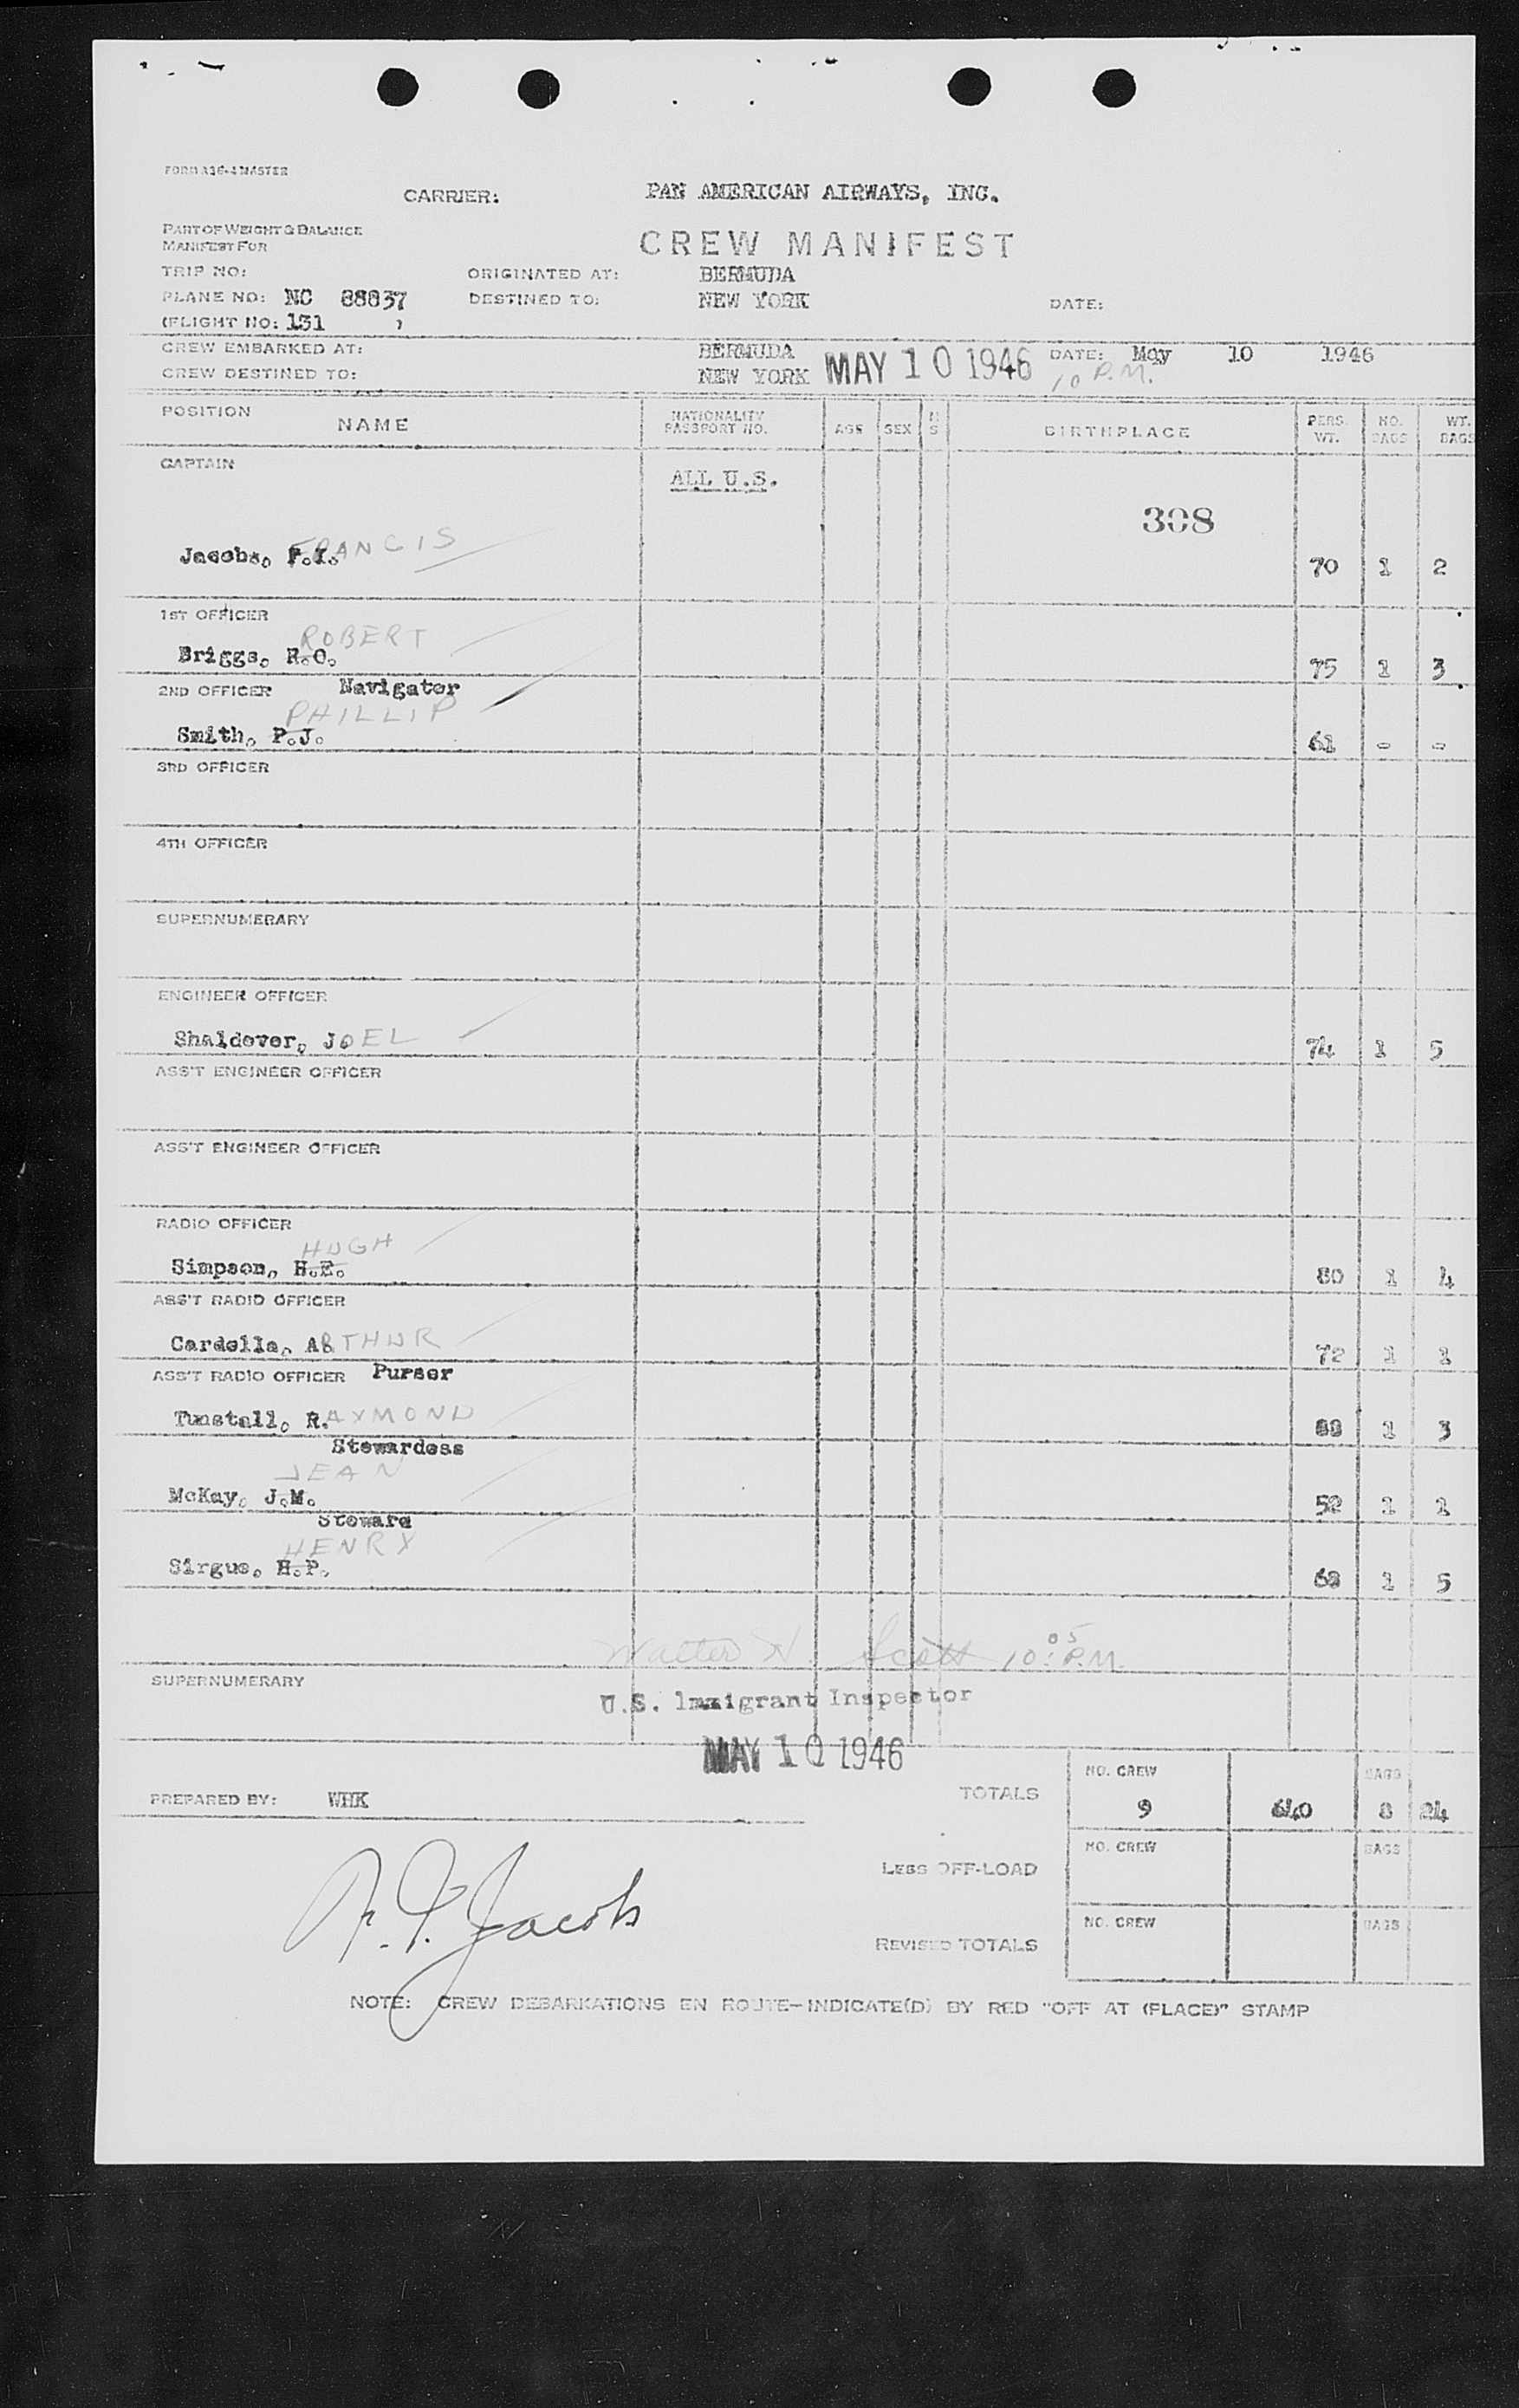 FORM A36-4 MASTER
CARRIER: PAN AMERICAN AIRWAYS, INC.
PART OF WEIGHT & BALANCE
MANIFEST FOR
CREW MANIFEST
TRIP NO: ORIGINATED AT: BERMUDA
PLANE NO: NC 88837 DESTINED TO: NEW YORK DATE:
(FLIGHT NO: 131 )
CREW EMBARKED AT: BERMUDA MAY 10 1946 DATE: May 10 1946
CREW DESTINED TO: NEW YORK 10 P.M.
POSITION NAME NATIONALITY PASSPORT NO. AGE SEX M S BIRTHPLACE PERS. WT. NO. BAGS WT. BAGS
CAPTAIN
ALL U.S.
308
Jacobs, F.I. FRANCIS 70 1 2
1ST OFFICER
ROBERT
Briggs, R.O. 75 1 3
2ND OFFICER Navigator
PHILLIP
Smith, P.J. 61 - -
3RD OFFICER
4TH OFFICER
SUPERNUMERARY
ENGINEER OFFICER
Shaldover, JOEL 74 1 5
ASS'T ENGINEER OFFICER
ASS'T ENGINEER OFFICER
RADIO OFFICER
HUGH
Simpson, H.E. 80 1 4
ASS'T RADIO OFFICER
Cardella, ARTHUR 72 1 1
ASS'T RADIO OFFICER Purser
Tunstall, R.AYMOND 1 3
Stewardess
JEAN
McKay, J.M. 52 1 1
Steward
HENRY
Sirgus, H.P. 68 1 5
Walter H. Scott 10:05 P.M.
SUPERNUMERARY
U.S. Immigrant Inspector
MAY 10 1946
PREPARED BY: WHK
TOTALS NO. CREW 9 640 BAGS 8 24
LESS OFF-LOAD NO. CREW BAGS
F. I. Jacobs
REVISED TOTALS NO. CREW BAGS
NOTE: CREW DEBARKATIONS EN ROUTE-INDICATE(D) BY RED "OFF AT (PLACE)" STAMP